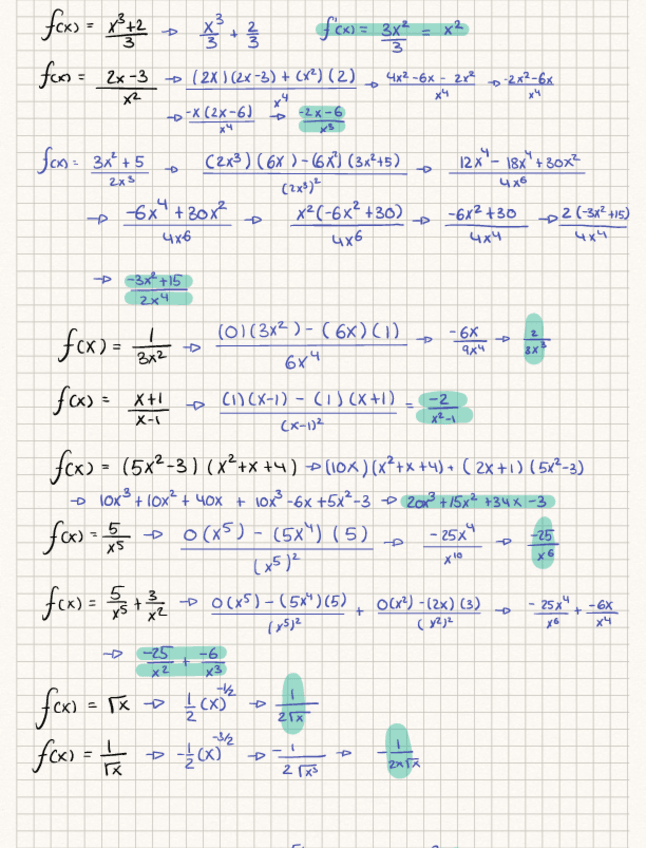 f(x) = (x³+2)/3 → x³/3 + 2/3 f'(x) = 3x²/3 = x²
f(x) = (2x-3)/x² → ((2x)(2x-3) + (x²)(2))/x⁴ → (4x²-6x - 2x²)/x⁴ → (-2x²-6x)/x⁴
→ -x(2x-6)/x⁴ → (-2x-6)/x³
f(x) = (3x²+5)/2x³ → ((2x³)(6x) - (6x²)(3x²+5))/(2x³)² → (12x⁴ - 18x⁴+30x²)/4x⁶
→ (-6x⁴+30x²)/4x⁶ → x²(-6x²+30)/4x⁶ → (-6x²+30)/4x⁴ → 2(-3x²+15)/4x⁴
→ (-3x²+15)/2x⁴
f(x) = 1/3x² → ((0)(3x²) - (6x)(1))/6x⁴ → -6x/9x⁴ → 2/3x³
f(x) = (x+1)/(x-1) → ((1)(x-1) - (1)(x+1))/(x-1)² = -2/(x²-1)
f(x) = (5x²-3)(x²+x+4) → (10x)(x²+x+4) + (2x+1)(5x²-3)
→ 10x³+10x²+40x + 10x³-6x+5x²-3 → 20x³+15x²+34x-3
f(x) = 5/x⁵ → (0(x⁵) - (5x⁴)(5))/(x⁵)² → -25x⁴/x¹⁰ → -25/x⁶
f(x) = 5/x⁵ + 3/x² → (0(x⁵) - (5x⁴)(5))/(x⁵)² + (0(x²) - (2x)(3))/(x²)² → -25x⁴/x⁶ + -6x/x⁴
→ -25/x² + -6/x³
f(x) = √x → 1/2(x)^-1/2 → 1/2√x
f(x) = 1/√x → -1/2(x)^-3/2 → -1/2√x³ → -1/2x√x